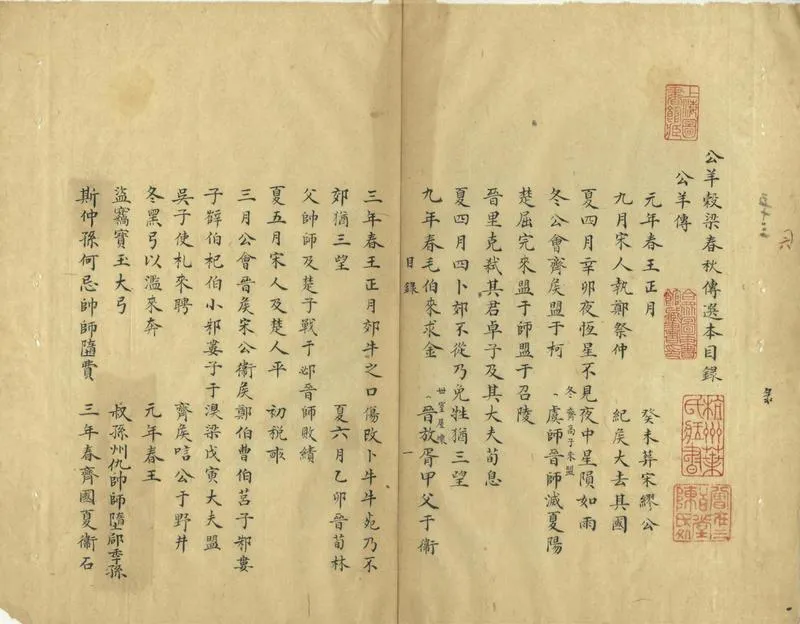 公羊穀梁春秋傳選本目錄
公羊傳
元年春王正月 癸未葬宋繆公
九月宋人執鄭祭仲 紀矦大去其國
夏四月辛卯夜恆星不見夜中星隕如雨
冬公會齊矦盟于柯 虞師晉師滅夏陽
冬齊高子來盟
楚屈完來盟于師盟于召陵
晉里克弒其君卓子及其大夫荀息
夏四月四卜郊不從乃免牲猶三望
九年春毛伯來求金 晉放胥甲父于衞
世室屋壞
目錄 一
三年春王正月郊牛之口傷改卜牛牛死乃不
郊猶三望 夏六月乙卯晉荀林
父帥師及楚子戰于邲晉師敗績
夏五月宋人及楚人平 初稅畝
三月公會晉矦宋公衞矦鄭伯曹伯莒子邾婁
子薛伯杞伯小邾婁子于溴梁戊寅大夫盟
吳子使札來聘 齊矦唁公于野井
冬黑弓以濫來奔 元年春王
盜竊寶玉大弓 叔孫州仇帥師墮郈季孫
斯仲孫何忌帥師墮費 三年春齊國夏衞石
上海圖書館藏